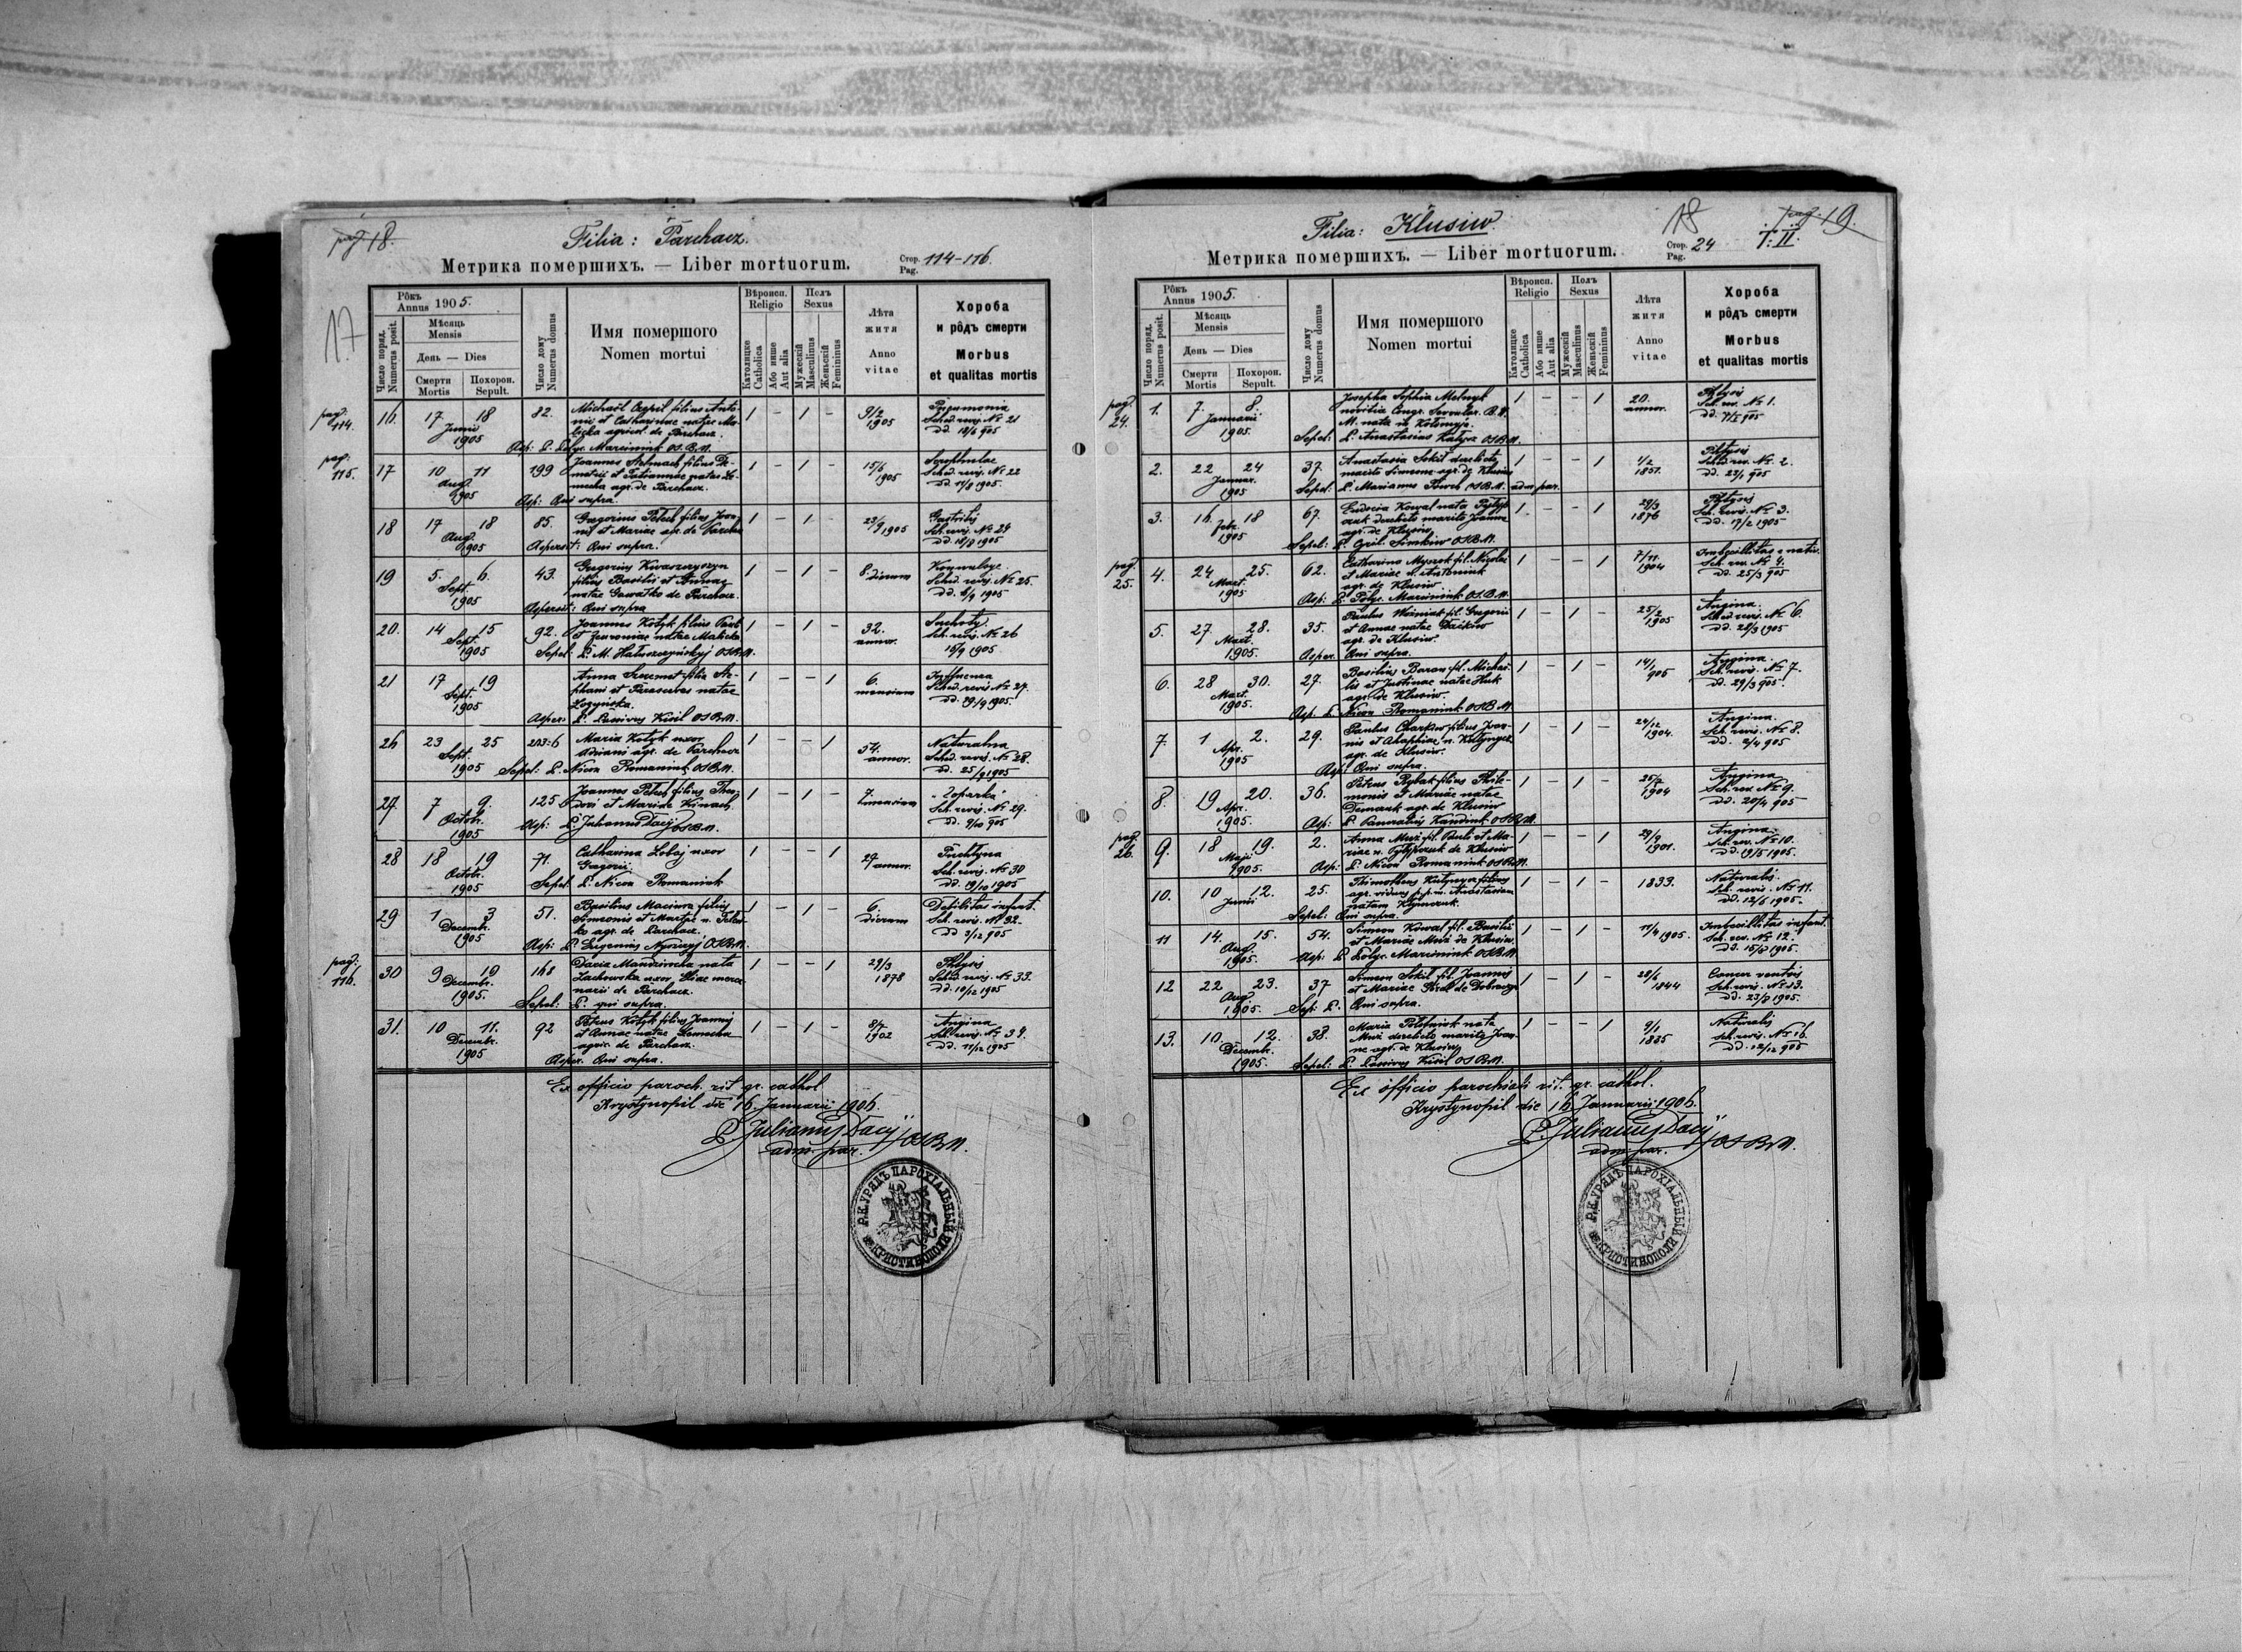 pag. 18.
Filia: Parchacz.
Метрика помершихъ. — Liber mortuorum.
Стор. Pag. 114-116.
17
Рôкъ Annus 1905.
Число поряд. Numerus posit.
Мѣсяць Mensis
День — Dies
Смерти Mortis
Похорон. Sepult.
Число дому Numerus domus
Имя помершого
Nomen mortui
Вѣроисп. Religio
Католицке Catholica
Або инше Aut alia
Полъ Sexus
Мужескій Masculinus
Женьскій Femininus
Лѣта житя
Anno vitae
Хороба
и рôдъ смерти
Morbus
et qualitas mortis
pag. 114.
16. 17 18 Junii 1905 82. Michaël filius Antonii et Catharinae natae agricol. de Parchacz. 1 - 1 - 9/2 1905 Pneumonia Sched. revis. № 21 dd. 18/6 905
Asp: P. Polyc. Marciniuk O.S.B.M.
pag. 115.
17 10 11 Aug. 1905 199 Joannes Stelmach filius et Tatiannae natae agr. de Parchacz. 1 - 1 - 15/6 1905 Sched. revis. № 22 dd. 11/8 1905.
Asp: Qui supra.
18 17 18 Aug. 1905 85. Gregorius Petech filius Joannis et Mariae agr. de Parchacz 1 - 1 - 23/9 1905 Gastritis Sch. revis. № 24 dd. 18/8 1905
Aspersit: Qui supra.
19 5. 6. Sept. 1905 43. Gregorius filius Basilii et Annae natae Gawałko de Parchacz. 1 - 1 - 8 dierum Konwulsye. Sched. revis. № 25. dd. 6/9 1905
Aspersit: Qui supra
20. 14 15 Sept. 1905 92. Joannes Kotyk filius Pauli et natae Malicka 1 - 1 - 32. annor. Suchoty. Sch. revis. № 26 15/9 1905
Sepel: P. M. Hałuszczyńskyj OSBM.
21 17 19 Sept. 1905 Anna filia Stephani et Parascevae natae Łozyńska. 1 - - 1 6. mensium Influenca Sched. revis № 27. dd. 19/9 1905.
Aspers: P. Kisil OSBM.
26 23 25 Sept. 1905 Maria Kotyk uxor Adriani agr. de Parchacz 1 - - 1 54. annor. Naturalna Sched. revis. № 28. dd. 25/9 1905
Sepel: P. Nicon Romaniuk OSBM.
27. 7 9. Octobr. 1905 125 Joannes Petech filius Theodori et Mariae Kinach. 1 - 1 - 7. mensium Sch. revis. № 29. dd. 9/10 905
Asp: P. Julianus Dacij OSBM.
28 18 19 Octobr. 1905 71. Catharina Łobaj uxor Gregorii. 1 - - 1 27 annor. Puchlyna Sch. revis. № 30 dd. 19/10 1905
Sepel. P. Nicon Romaniuk
29 1 3 Decembr. 1905 51. Basilius Maciura filius Simeonis et Marthae n. agr. de Parchacz. 1 - 1 - 6. dierum Debilitas infant. Sch. revis. № 32. dd 2/12 905
Asp: P. Eugenius OSBM.
pag. 116.
30 9 10 Decembr. 1905. 168 Daria Mandzincha nata Lachowska uxor Eliae mercenarii de Parchacz. 1 - - 1 29/3 1878 Phtysis Sched. revis. № 33. dd. 10/12 1905
Sepel: P. qui supra.
31. 10 11. Decembr. 1905 92 Petrus Kotyk filius Joannis et Annae natae Semecha agric. de Parchacz. 1 - 1 - 8/7 1902 Angina Sch. revis. № 34. dd. 11/12 1905
Asper. Qui supra.
Ex officio paroch. rit. gr. cathol.
Krystynopil die 16. Januarii 1906.
P. Julianus Dacij OSBM.
adm. par.
Р.К. УРЯДЪ ПАРОХІАЛЬНЫЙ въ КРИСТИНОПОЛИ
pag. 19.
Filia: Klusiw.
18
T. II.
Метрика помершихъ. — Liber mortuorum.
Стор. Pag. 24
Рôкъ Annus 1905.
Число поряд. Numerus posit.
Мѣсяць Mensis
День — Dies
Смерти Mortis
Похорон. Sepult.
Число дому Numerus domus
Имя помершого
Nomen mortui
Вѣроисп. Religio
Католицке Catholica
Або инше Aut alia
Полъ Sexus
Мужескій Masculinus
Женьскій Femininus
Лѣта житя
Anno vitae
Хороба
и рôдъ смерти
Morbus
et qualitas mortis
pag. 24.
1. 7. 8. Januarii 1905. Josepha Sophia Melnyk novitia Congr. Servular. B.V.M. nata in Kołomyja. 1 - - 1 20. annor. Phtysis Sch. rev. № 1.
Sepel: P. Anastasius Kałysz OSBM.
2. 22 24 Januar. 1905 37. Anastasia Sokił derelicta marito Simeone agr. de Klusiw 1 - - 1 1/2 1851. Phtysis Sched. rev. № 2. dd. 23/1 905
Sepel: P. Marianus OSBM. adm. par.
3. 16. 18 Febr. 1905 67. Eudocia Kowal nata derelicto marito Joanne agr. de Klusiw 1 - - 1 29/3 1876 Phtysis Sch. revis. № 3. dd. 17/2 1905
Sepel: P. Cyril. Simkiw OSBM.
pag. 25.
4. 24 25. Mart. 1905 62. Catharina Myszok fil. Nicolai et Mariae n. Antoniuk agr. de Klusiw 1 - - 1 7/11 1904 Imbecillitas a nativ. Sch. rev. № 4. dd. 25/3 905
Asp: P. Polyc. Marciniuk OSBM.
5. 27. 28. Mart. 1905. 35. Paulus Wozniak fil. Gregorii et Annae natae agr. de Klusiw. 1 - 1 - 25/2 1905 Angina. Sched. revis. № 6. dd. 28/3 1905
Asper. Qui supra.
6. 28 30. Mart. 1905. 27. Basilius Baran fil. Michaelis et Justinae natae Huk agr. de Klusiw. 1 - 1 - 14/1 905 Angina. Sch. revis. № 7. dd. 29/3 905.
Asp. P. Nicon Romaniuk OSBM
7. 1 2. Apr. 1905 29. Paulus Charkiw filius Joannis et Ahaphiae n. agr. de Klusiw. 1 - 1 - 24/12 1904. Angina. Sch. revis. № 8. dd. 2/4 905
Asp: Qui supra.
8. 19 20. Apr. 1905. 36. Petrus Rybak filius Philemonis et Mariae natae Demczuk agr. de Klusiw 1 - 1 - 25/2 1904 Angina Sch. rev. № 9. dd. 20/4 905
Asp: P. Pancratius Kandiuk OSBM.
pag. 26.
9. 18 19. Maji 1905. 2. Anna Muzi fil. Pauli et Mariae n. Pylypczuk de Klusiw 1 - - 1 29/9 1901. Angina. Sch. rev. № 10. dd. 19/5 1905.
Asp: P. Nicon Romaniuk OSBM.
10. 10 12. Junii 25. Thimotheus agr. viduus p.p.m. Anastasiam natam Klymczuk. 1 - 1 - 1833. Naturalis. Sch. revis. № 11. dd. 12/6 1905.
Sepel: Qui supra.
11 14. 15. Aug. 1905. 54. Simeon Kowal fil. Basilii et Mariae Muzi de Klusiw. 1 - 1 - 11/4 1905. Imbecillitas infant. Sch. rev. № 12. dd. 15/8 1905.
Asp: P. Polyc. Marciniuk OSBM.
12 22 23. Aug. 1905. 37 Simeon Sokił fil. Joannis et Mariae 1 - 1 - 28/5 1844 Cancer ventris Sch. revis. № 13. dd. 23/8 1905.
Sep: P. Qui supra.
13. 10. 12. Decembr. 1905. 38. Maria nata Muzi derelicto marito Joanne agr. de Klusiw 1 - - 1 9/1 1835 Naturalis Sch. revis. № 16 dd. 12/12 905
Sepel: P. Kisil OSBM.
Ex officio parochiali rit. gr. cathol.
Krystynopil die 16 Januarii 1906.
P. Julianus Dacij OSBM.
adm. par.
Р.К. УРЯДЪ ПАРОХІАЛЬНЫЙ въ КРИСТИНОПОЛИ